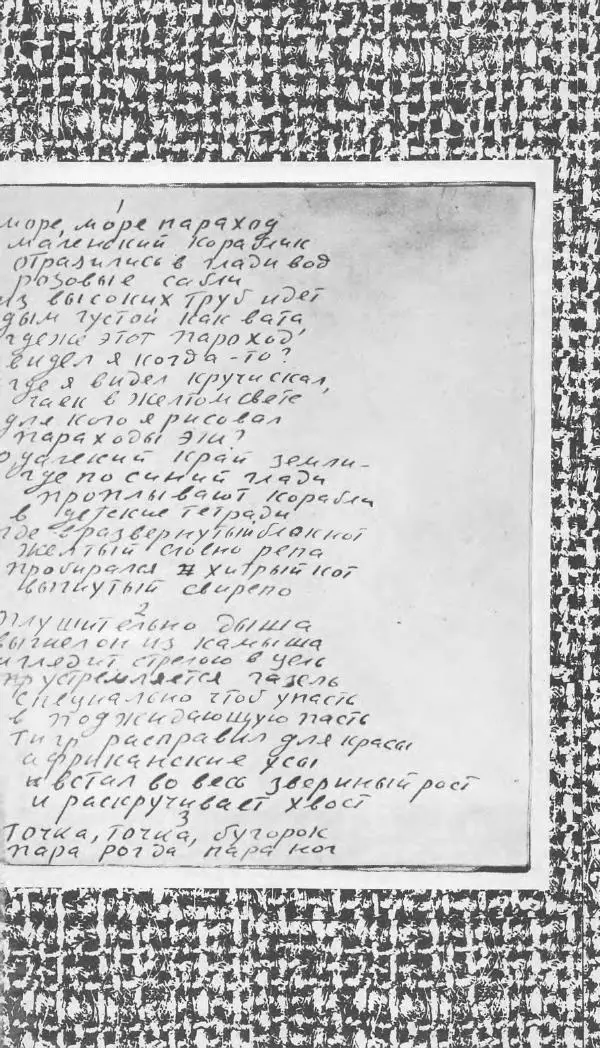 1
море, море параход
маленский кораблик
отразились в глади вод
розовые сабли
из высоких труб идет
дым густой как вата
где же этот пароход,
видел я когда-то?
где я видел кручи скал,
гаек в желтом свете
для кого я рисовал
параходы эти?
далекий край земли-
где по синий глади
проплывают корабли
в детские тетради
где в развернутый блакнот
желтый словно репа
пробирался хитрый кот
выгнутый свирепо
2
оглушительно дыша
вышел он из камыша
и глядит стрелою в цель
устремляется газель
специально чтоб упасть
в поджидающую пасть
тигр расправил для красы
африканские усы
и встал во весь звериный рост
и раскручивает хвост
3
точка, точка, бугорок
пара рог да пара ног